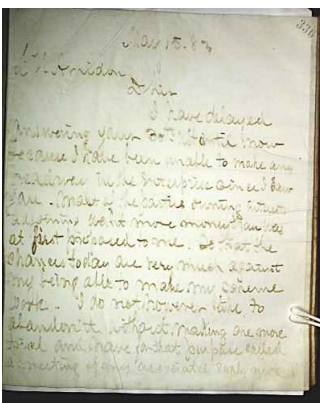 336
May 15. 83
D Sir
I have delayed
answering your until now
because I have been unable to make any
headway in the enterprise since I saw
you. Some of the parties owning interests
adjoining want more money than was
at first proposed to me. So that the
chances today are very much against
my being able to make my scheme
work. I do not however like to
abandon it without making one more
trial and have for that purpose called
a meeting of my associates early